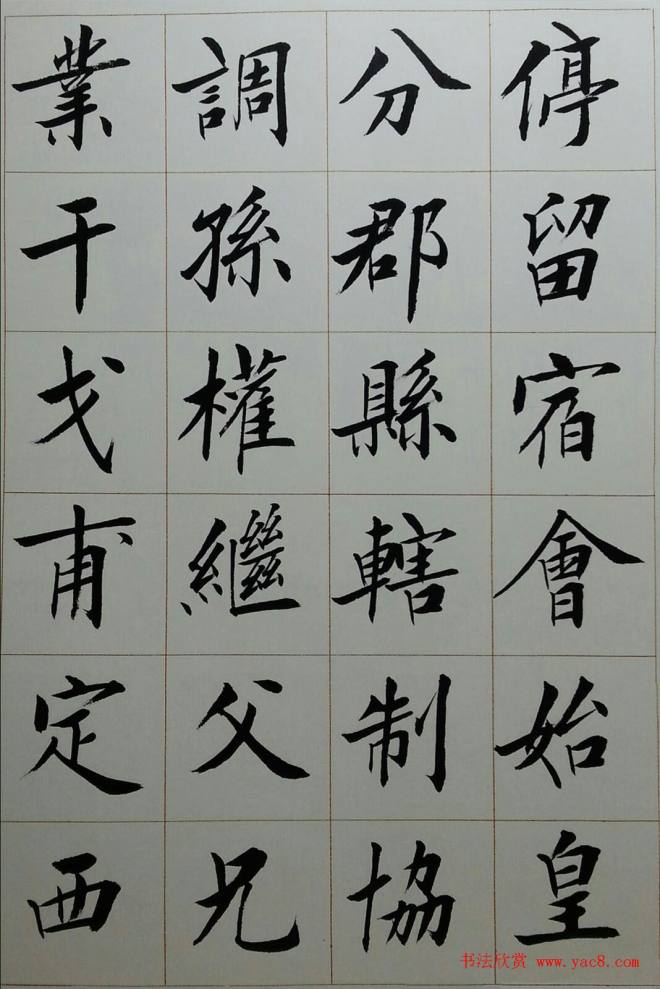 停留宿會始皇
分郡縣轄制協
調孫權繼父兄
業干戈甫定西
书法欣赏 www.yac8.com